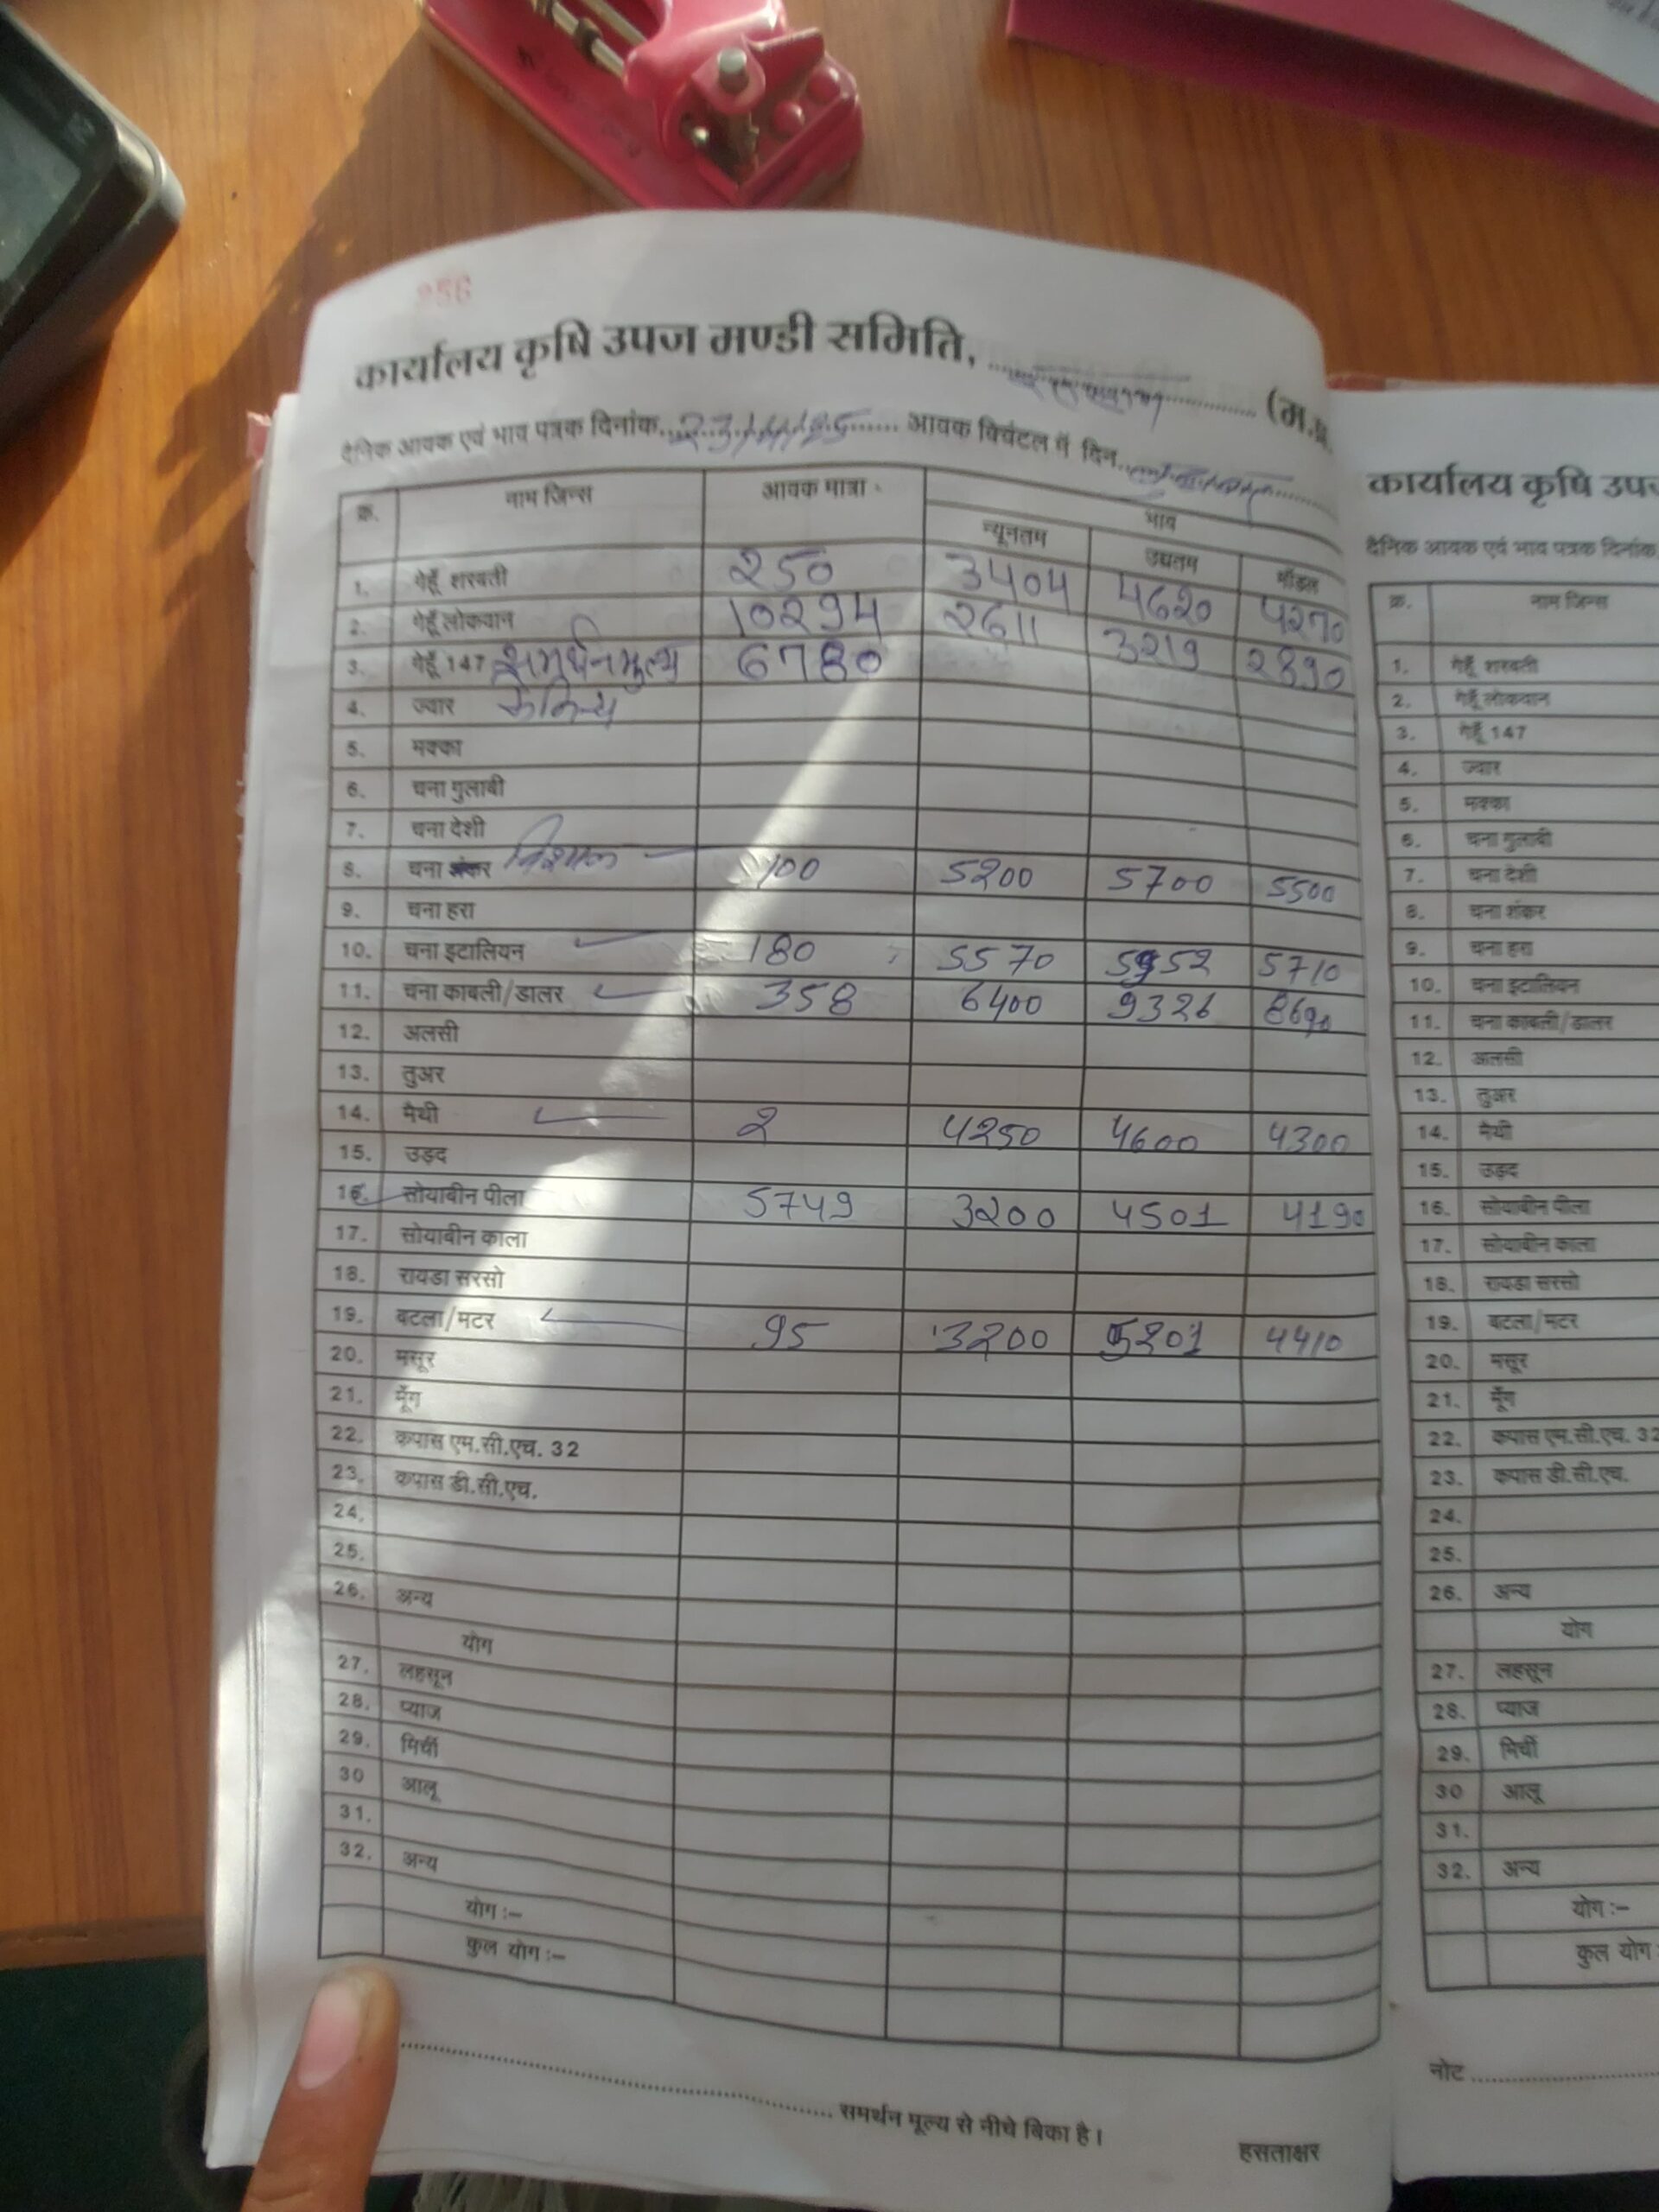 256
कार्यालय कृषि उपज मण्डी समिति, (म.प्र.
दैनिक आवक एवं भाव पत्रक दिनांक 23/4/25 आवक क्विंटल में दिन
क्र. नाम जिन्स आवक मात्रा भाव
न्यूनतम उच्चतम मॉडल
1. गेहूँ शरबती 250 3404 4620 4270
2. गेहूँ लोकवान 10294 2611 3219 2890
3. गेहूँ 147 समर्थन मुल्य 6780
4. ज्वार
5. मक्का
6. चना गुलाबी
7. चना देशी
8. चना शंकर विशाल 100 5200 5700 5500
9. चना हरा
10. चना इटालियन 180 5570 5952 5710
11. चना काबली/डालर 358 6400 9326 8690
12. अलसी
13. तुअर
14. मैथी 2 4250 4600 4300
15. उड़द
16. सोयाबीन पीला 5749 3200 4501 4190
17. सोयाबीन काला
18. रायडा सरसो
19. बटला/मटर 95 3200 5201 4410
20. मसूर
21. मूँग
22. कपास एम.सी.एच. 32
23. कपास डी.सी.एच.
24.
25.
26. अन्य
योग
27. लहसून
28. प्याज
29. मिर्ची
30 आलू
31.
32. अन्य
योग :-
कुल योग :-
समर्थन मूल्य से नीचे बिका है।
हसताक्षर
कार्यालय कृषि उपज
दैनिक आवक एवं भाव पत्रक दिनांक
क्र. नाम जिन्स
1. गेहूँ शरबती
2. गेहूँ लोकवान
3. गेहूँ 147
4. ज्वार
5. मक्का
6. चना गुलाबी
7. चना देशी
8. चना शंकर
9. चना हरा
10. चना इटालियन
11. चना काबली/डालर
12. अलसी
13. तुअर
14. मैथी
15. उड़द
16. सोयाबीन पीला
17. सोयाबीन काला
18. रायडा सरसो
19. बटला/मटर
20. मसूर
21. मूँग
22. कपास एम.सी.एच. 32
23. कपास डी.सी.एच.
24.
25.
26. अन्य
योग
27. लहसून
28. प्याज
29. मिर्ची
30 आलू
31.
32. अन्य
योग :-
कुल योग :
नोट